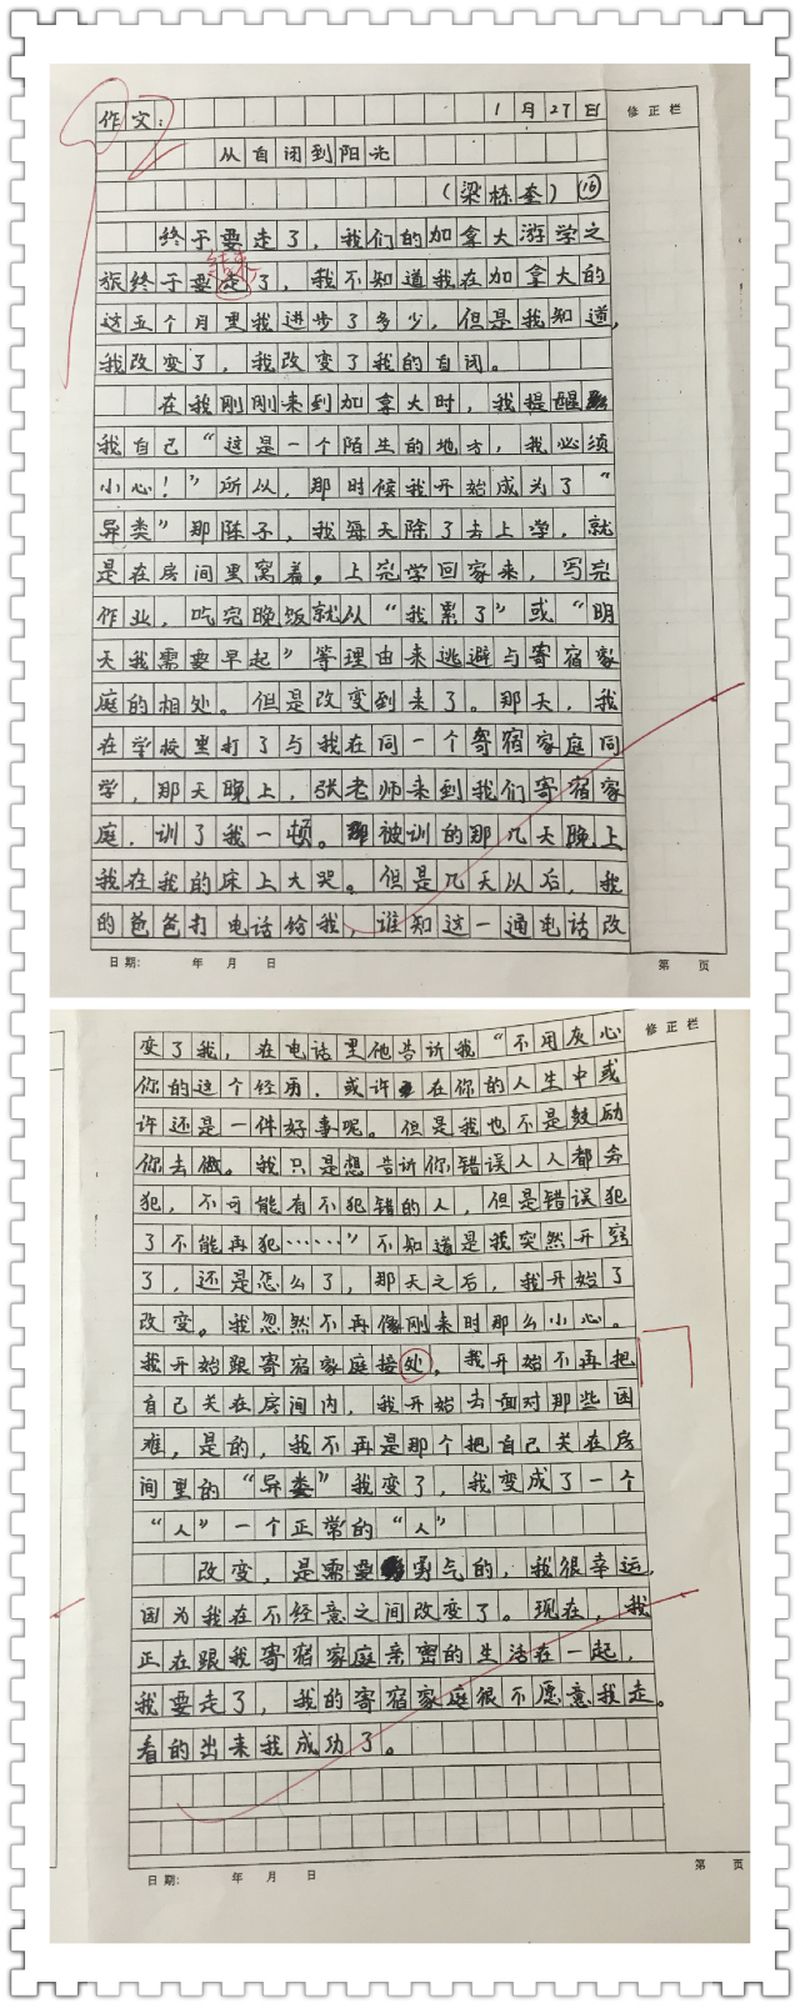 92
作文： 1月27日 修正栏
从自闭到阳光
（梁栋奎）⑯
终于要走了，我们的加拿大游学之
结束
旅终于要走了，我不知道我在加拿大的
这五个月里我进步了多少，但是我知道，
我改变了，我改变了我的自闭。
在我刚刚来到加拿大时，我提醒
我自己“这是一个陌生的地方，我必须
小心！”所以，那时候我开始成为了“
异类”那阵子，我每天除了去上学，就
是在房间里窝着。上完学回家来，写完
作业，吃完晚饭就从“我累了”或“明
天我需要早起”等理由来逃避与寄宿家
庭的相处。但是改变到来了。那天，我
在学校里打了与我在同一个寄宿家庭同
学，那天晚上，张老师来到我们寄宿家
庭，训了我一顿。被训的那几天晚上
我在我的床上大哭。但是几天以后，我
的爸爸打电话给我，谁知这一通电话改
日期： 年 月 日 第 页
变了我，在电话里他告诉我“不用灰心 修正栏
你的这个经历，或许在你的人生中或
许还是一件好事呢。但是我也不是鼓励
你去做。我只是想告诉你错误人人都会
犯，不可能有不犯错的人，但是错误犯
了不能再犯……”不知道是我突然开窍
了，还是怎么了，那天之后，我开始了
改变。我忽然不再像刚来时那么小心。
我开始跟寄宿家庭接处，我开始不再把
自己关在房间内，我开始去面对那些困
难，是的，我不再是那个把自己关在房
间里的“异类”我变了，我变成了一个
“人”一个正常的“人”
改变，是需要勇气的，我很幸运，
因为我在不经意之间改变了。现在，我
正在跟我寄宿家庭亲密的生活在一起，
我要走了，我的寄宿家庭很不愿意我走。
看的出来我成功了。
日期： 年 月 日 第 页